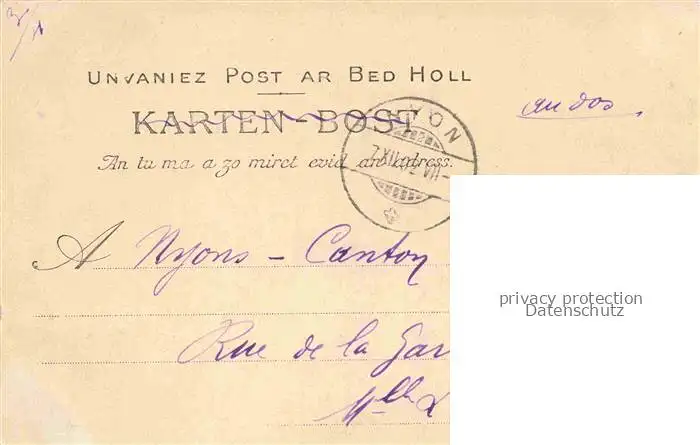 UNVANIEZ POST AR BED HOLL
KARTEN-BOST
au dos.
An tu ma a zo miret evid an adress.
NYON
7.XII.02 VII-
A Nyons - Canton
Rue de la Gar
Mlle L
privacy protection
Datenschutz